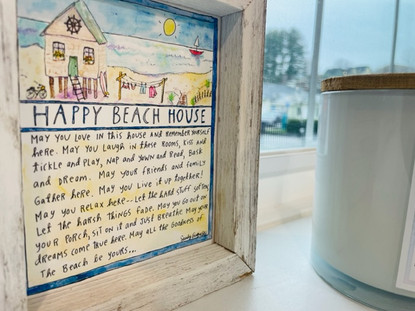 HAPPY BEACH HOUSE
MAY YOU LOVE IN THIS HOUSE AND REMEMBER YOURSELF
here. MAY YOU LAUGH in these ROOMS, Kiss and
tickle and PLAY, NAP and YAWN and Read, BASK
and DREAM. MAY YOUR FRIENDS and FAMILY
GATHER here. MAY you LIVE it UP together!
MAY YOU RELAX here... LET the HARD STUFF SOFTEN,
LET the HARSH THINGS FADE. MAY you GO OUT ON
YOUR PORCH, SIT ON it and JUST BREATHE MAY YOUR
DREAMS COME TRUE here. MAY ALL the GOODNESS OF
The BEACH be YOURS...